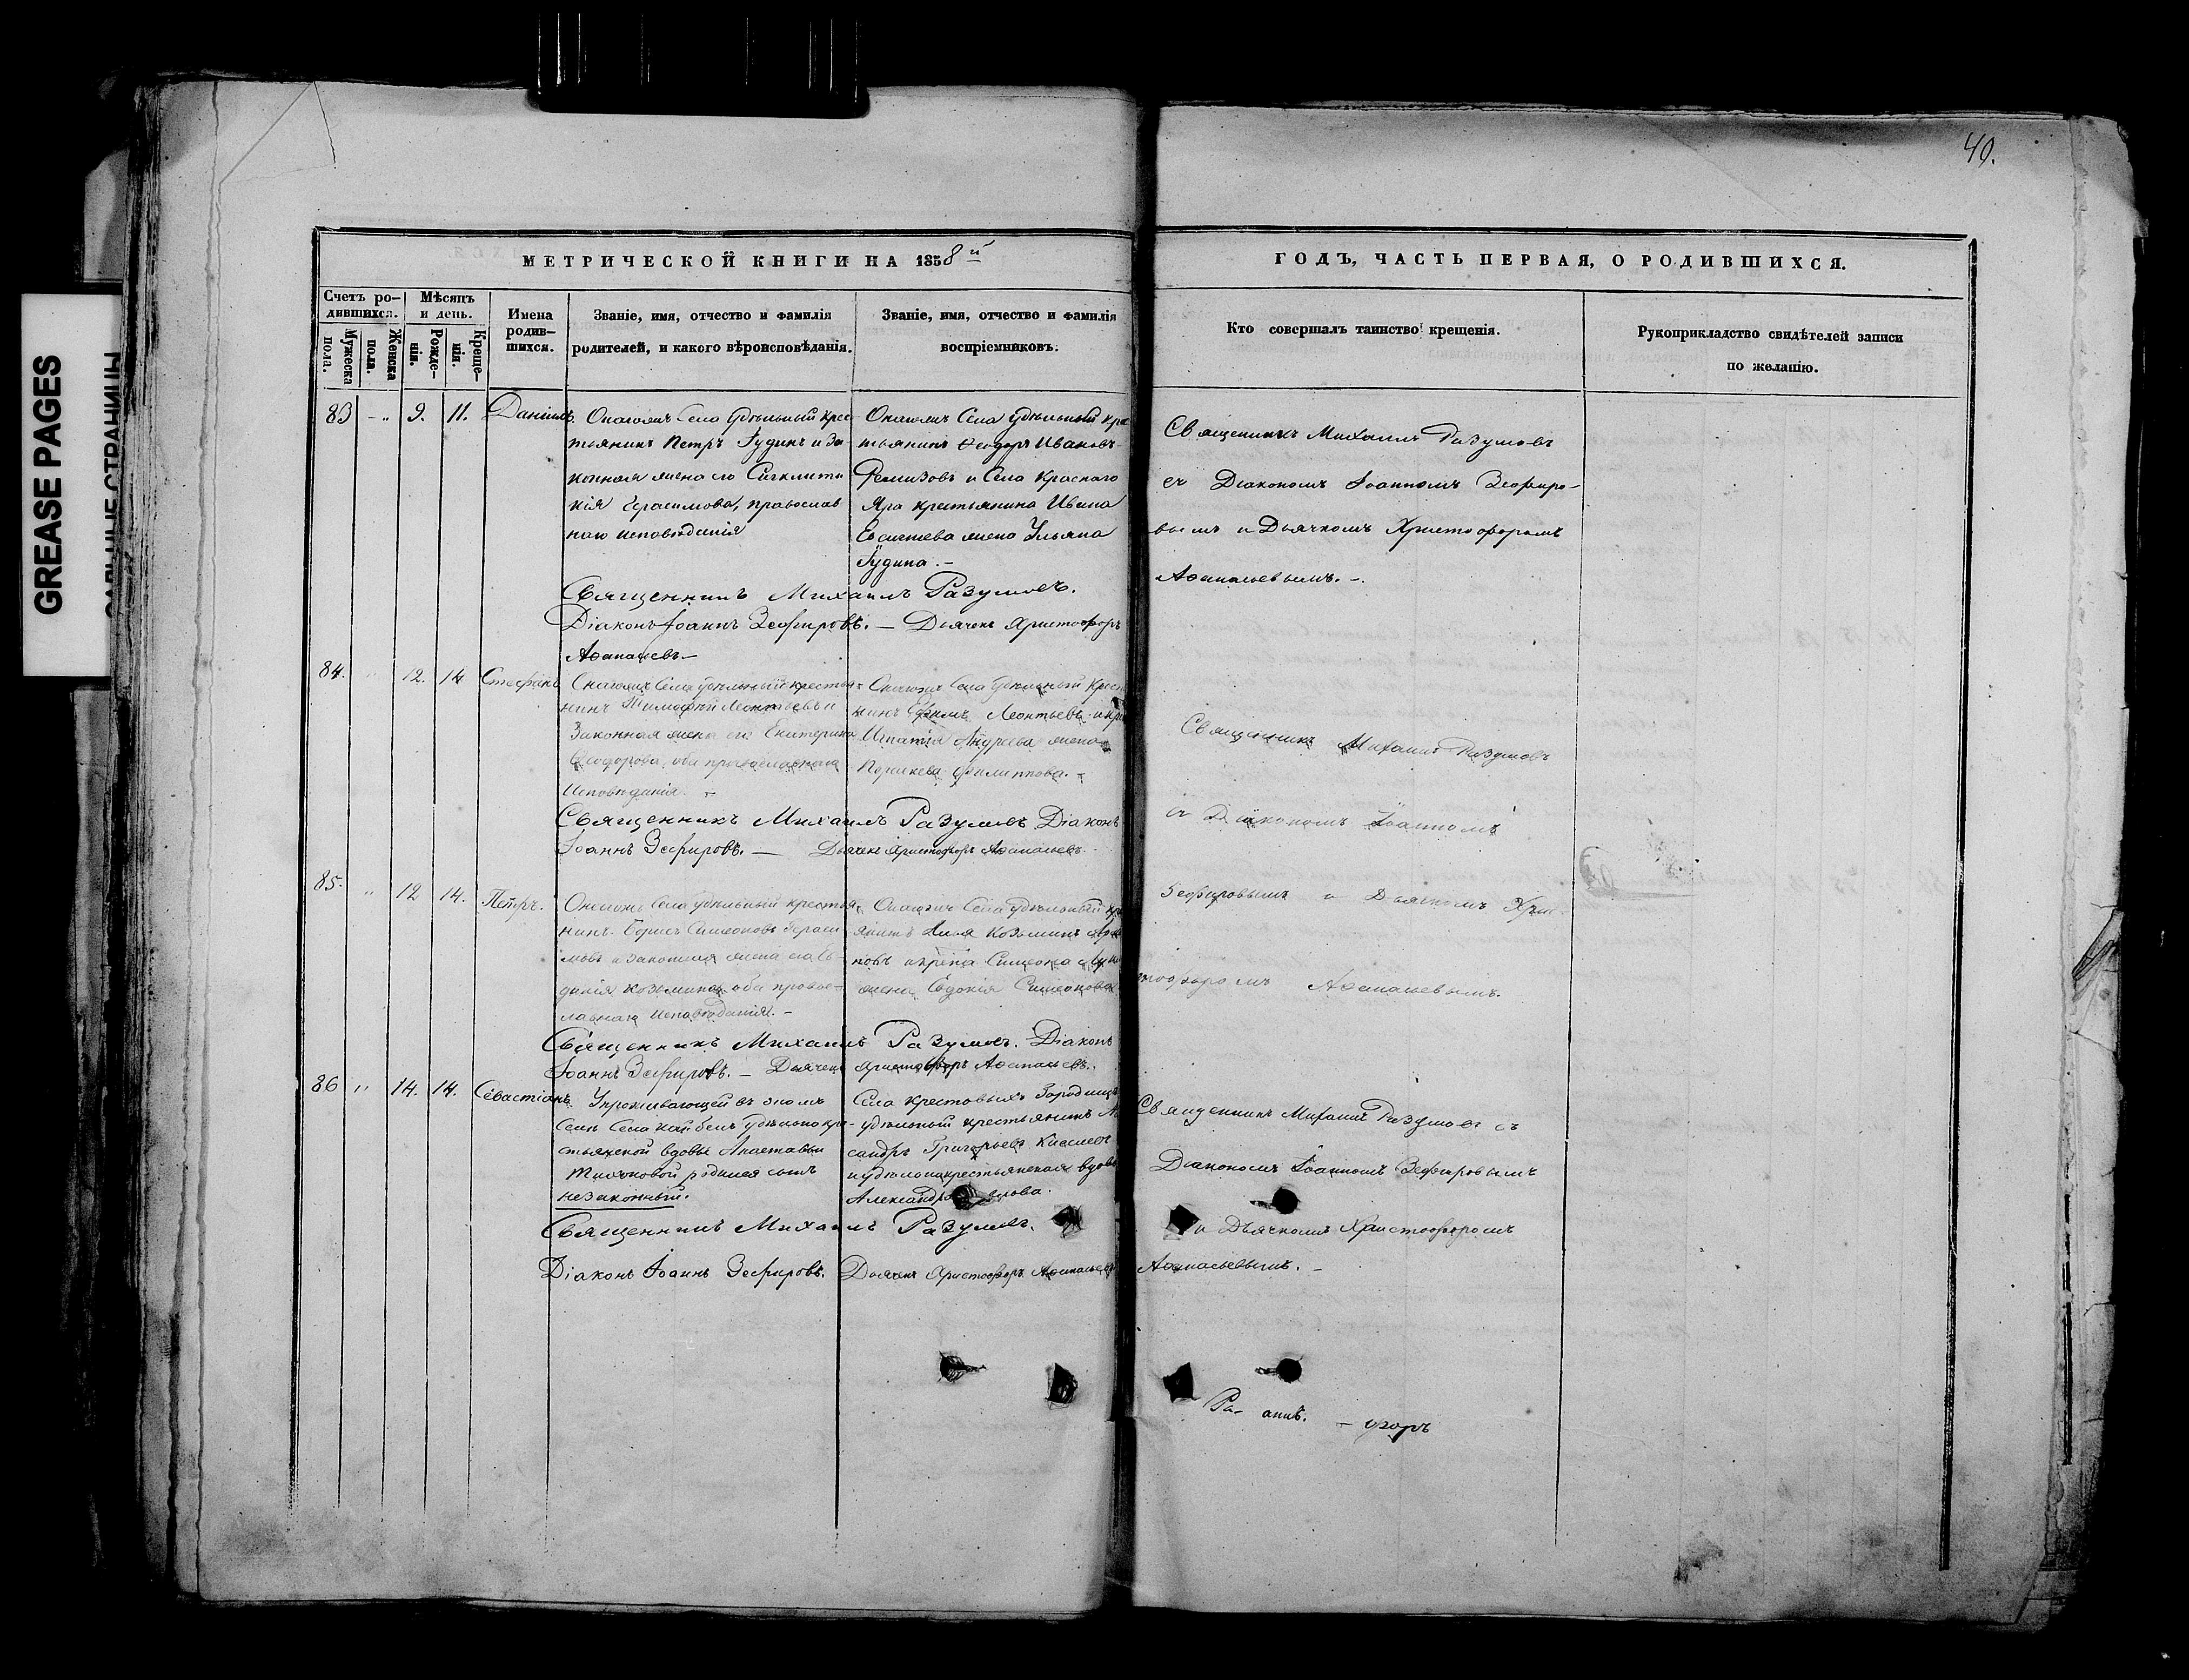 GREASE PAGES
САЛЬНЫЕ СТРАНИЦЫ
40.
МЕТРИЧЕСКОЙ КНИГИ НА 1858й
ГОДЪ, ЧАСТЬ ПЕРВАЯ, О РОДИВШИХСЯ.
Счетъ ро-
дившихся.
Мужеска
пола.
Женска
пола.
Мѣсяцъ
и день.
Рожде-
нія.
Креще-
нія.
Имена
родив-
шихся.
Званіе, имя, отчество и фамилія
родителей, и какого вѣроисповѣданія.
Званіе, имя, отчество и фамилія
воспріемниковъ.
Кто совершалъ таинство крещенія.
Рукоприкладство свидѣтелей записи
по желанію.
83 - " 9. 11. Даніилъ.
Села Удѣльный крес-
тьянинъ Петръ Гудинъ и за
конная жена его Сигклити
кія Герасимова, православ
наго исповѣданія
Села Удѣльный кре
тьянинъ Ѳеодоръ Ивановъ
Ремизовъ и Села Краснаго
Яра крестьянина Ивана
жена Ульяна
Гудина. -
Священникъ Михаилъ Разумовъ
съ Діакономъ Іоанномъ Зефиро-
вымъ и Дьячкомъ Христофоромъ
Аѳанасьевымъ. -
Священникъ Михаилъ Разумовъ.
Діаконъ Іоаннъ Зефировъ. — Дьячекъ Христофоръ
Аѳанасьевъ. —
84. " 12. 14 Стефанъ
Села Удѣльный крестья-
нинъ Тимофей Леонтьевъ и
Законная жена его Екатерина
Ѳеодорова, оба православнаго
Исповѣданія. -
Села Удѣльный Крест
нинъ Леонтьевъ и кр
Игнатія Андреева жена
Филиппова. -
Священникъ Михаилъ Разумовъ
съ Діакономъ Іоанномъ
Зефировымъ и Дьячкомъ Хрис-
тофоромъ Аѳанасьевымъ.
Священникъ Михаилъ Разумовъ Діаконъ
Іоаннъ Зефировъ. — Дьячекъ Христофоръ Аѳанасьевъ.
85. " 12 14. Петръ.
Села Удѣльный крестья-
нинъ Борисъ Симеоновъ Гераси
мовъ и законная жена его Ев-
докія Козьмина, оба правос-
лавнаго исповѣданія. -
Села Удѣльный кр
Илья Козьминъ
новъ и кр-на Симеона
жена Евдокія Симеонова
Священникъ Михаилъ Разумовъ. Діаконъ
Іоаннъ Зефировъ. — Дьячекъ Христофоръ Аѳанасьевъ.
86 " 14. 14. Севастіанъ
У проживающей въ ономъ
Селѣ Села Удѣльно кре-
стьянской вдовы Анастасіи
родился сынъ
незаконный.
Села Крестовыхъ Городищъ
удѣльный крестьянинъ
сандръ Григорьевъ Киселевъ
и удѣльнокрестьянская вдова
Александра
Священникъ Михаилъ Разумовъ съ
Діакономъ Іоанномъ Зефировымъ
и Дьячкомъ Христофоромъ
Аѳанасьевымъ. -
Священникъ Михаилъ Разумовъ.
Діаконъ Іоаннъ Зефировъ. Дьячекъ Христофоръ Аѳанасьевъ
Ра- аннъ. - форъ